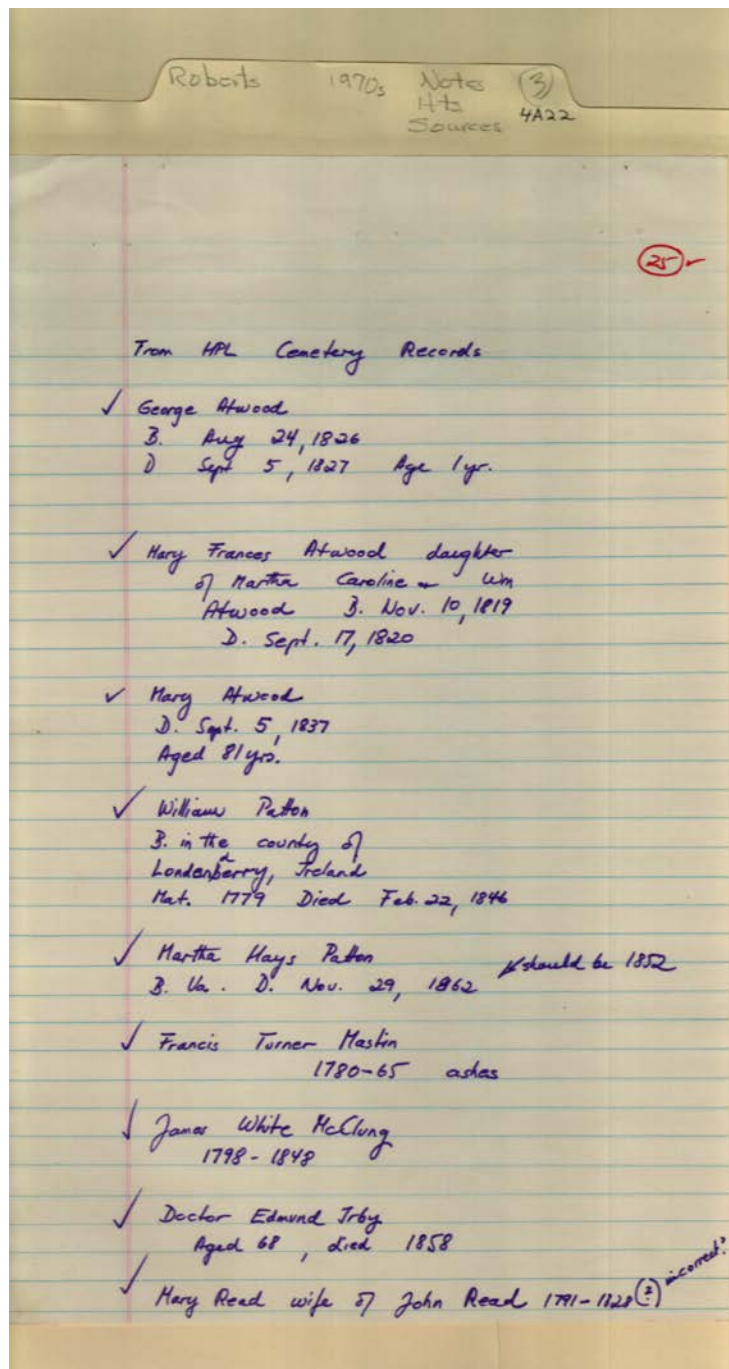 Roberts 1970s Notes 3
Hts 4A22
Sources
25
From HPL Cemetery Records
✓ George Atwood
B. Aug 24, 1826
D Sept 5, 1827 Age 1 yr.
✓ Mary Frances Atwood daughter
of Martha Caroline + Wm
Atwood B. Nov. 10, 1819
D. Sept. 17, 1820
✓ Mary Atwood
D. Sept. 5, 1837
Aged 81 yrs.
✓ William Patton
B. in the county of
Londenderry, Ireland
Nat. 1779 Died Feb. 22, 1846
✓ Martha Hays Patton
B. Va. D. Nov. 29, 1862 should be 1852
✓ Francis Turner Mastin
1780-65 ashes
✓ James White McClung
1798-1848
✓ Doctor Edmund Irby
Aged 68, died 1858
✓ Mary Read wife of John Read 1791-1828 (?) incorrect?